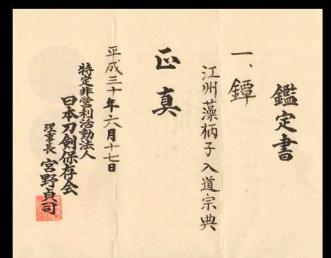 鑑定書
一、鐔
江州藻柄子入道宗典
正真
平成三十年六月十七日
特定非営利活動法人
日本刀剣保存会
理事長 宮野貞司